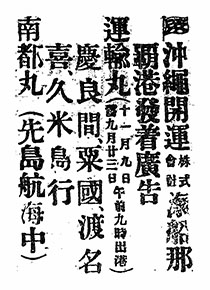 沖繩開運株式會社那
覇港發着廣告
運輸丸(十一月九日午前九時出港)(舊九月廿三日)
慶良間、粟國、渡名
喜久米島行
南都丸(先島航海中)